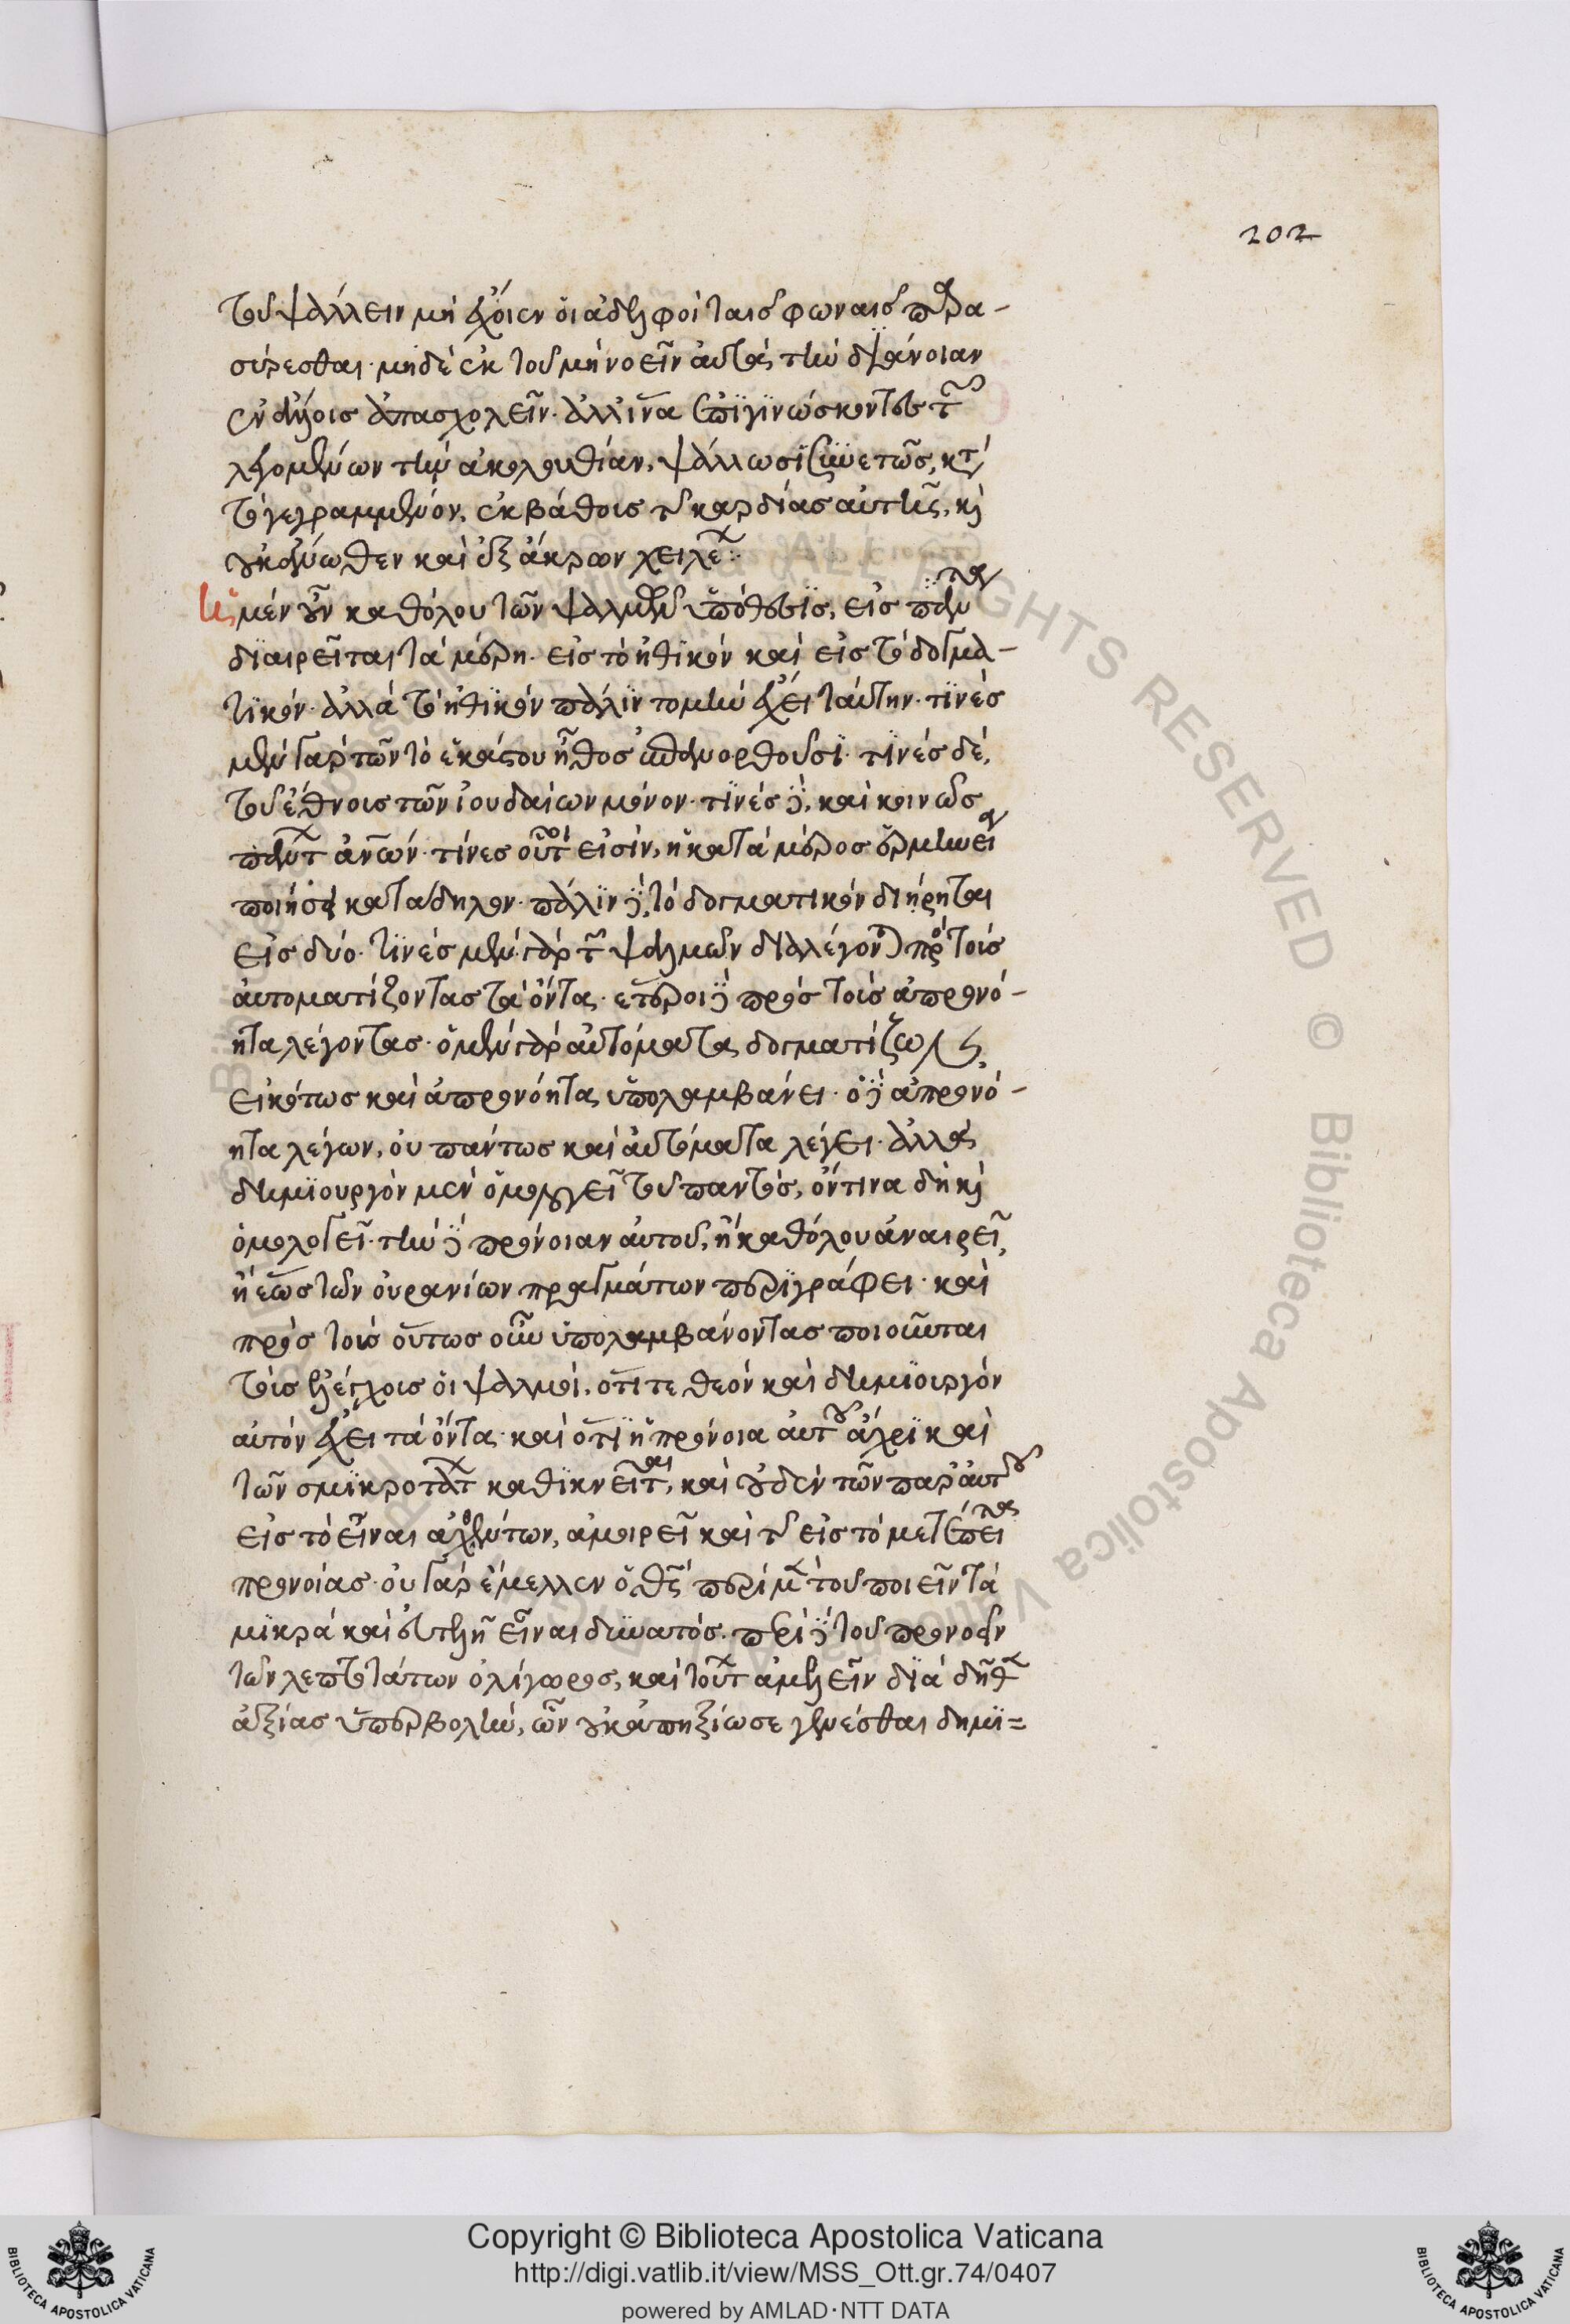 202
τοῦ ψάλλειν μὴ ἔχοιεν οἱ ἀδελφοὶ ταῖς φωναῖς παρα-
σύρεσθαι· μηδὲ ἐκ τοῦ μὴ νοεῖν αὐτὰς τὴν διάνοιαν
ἐν ἄλλοις ἀπασχολεῖν· ἀλλ' ἵνα ἐπιγινώσκοντες τῶν
λεγομένων τὴν ἀκολουθίαν, ψάλλωσι συνετῶς, κατὰ
τὸ γεγραμμένον, ἐκ βάθους τῆς καρδίας αὐτῆς, καὶ
οὐκ ἄνωθεν καὶ ἐξ ἄκρων χειλέων:
Ἡ μὲν οὖν καθόλου τῶν ψαλμῶν ὑπόθεσις, εἰς
διαιρεῖται τὰ μέρη· εἰς τὸ ἠθικὸν καὶ εἰς τὸ δογμα-
τικόν· ἀλλὰ τὸ ἠθικὸν πάλιν τομὴν ἔχει ταύτην· τινὲς
μὲν γὰρ αὐτῶν τὸ ἑκάστου ἦθος ἐπανορθοῦσι· τινὲς δὲ,
τοῦ ἔθνους τῶν ἰουδαίων μόνον· τινὲς δὲ, καὶ κοινῶς
πάντων ἀνθρώπων· τίνες οὗτοι εἰσὶν, ἡ κατὰ μέρος ἑρμηνεία
ποιήσει κατάδηλον· πάλιν δὲ, τὸ δογματικὸν διήρηται
εἰς δύο· τινὲς μὲν γὰρ τῶν ψαλμῶν διαλέγονται πρὸς τοὺς
αὐτοματίζοντας τὰ ὄντα· ἕτεροι δὲ πρὸς τοὺς ἀπρονό-
ητα λέγοντας· ὁ μὲν γὰρ αὐτόματα δογματίζων
εἰκότως καὶ ἀπρονόητα ὑπολαμβάνει· ὁ δὲ ἀπρονό-
ητα λέγων, οὐ πάντως καὶ αὐτόματα λέγει· ἀλλὰ
δημιουργὸν μὲν ὁμολογεῖ τοῦ παντὸς, ὅντινα δὴ καὶ
ὁμολογεῖ· τὴν δὲ πρόνοιαν αὐτοῦ, ἢ καθόλου ἀναιρεῖ,
ἢ ἕως τῶν οὐρανίων πραγμάτων περιγράφει· καὶ
πρὸς τοὺς οὕτως οὖν ὑπολαμβάνοντας ποιοῦνται
τοὺς ἐλέγχους οἱ ψαλμοὶ, ὅτι τε θεὸν καὶ δημιουργὸν
αὐτὸν ἔχει τὰ ὄντα· καὶ ὅτι ἡ πρόνοια αὐτοῦ ἄχρι καὶ
τῶν σμικροτάτων καθικνεῖται, καὶ οὐδὲν τῶν παρ' αὐτοῦ
εἰς τὸ εἶναι ἀχθέντων, ἀμοιρεῖ καὶ τῆς εἰς τὸ μετέπειτα
προνοίας· οὐ γὰρ ἔμελλεν ὁ θεὸς περὶ μὲν τοῦ ποιεῖν τὰ
μικρὰ καὶ εὐτελῆ εἶναι δυνατός· περὶ δὲ τοῦ προνοεῖν
τῶν λεπτοτάτων ὀλίγωρος, καὶ τούτων ἀμελεῖν διὰ δὴ τῆς
ἀξίας ὑπερβολὴν, ὧν οὐκ ἀπηξίωσε γενέσθαι δημι-
Copyright © Biblioteca Apostolica Vaticana
http://digi.vatlib.it/view/MSS_Ott.gr.74/0407
powered by AMLAD·NTT DATA